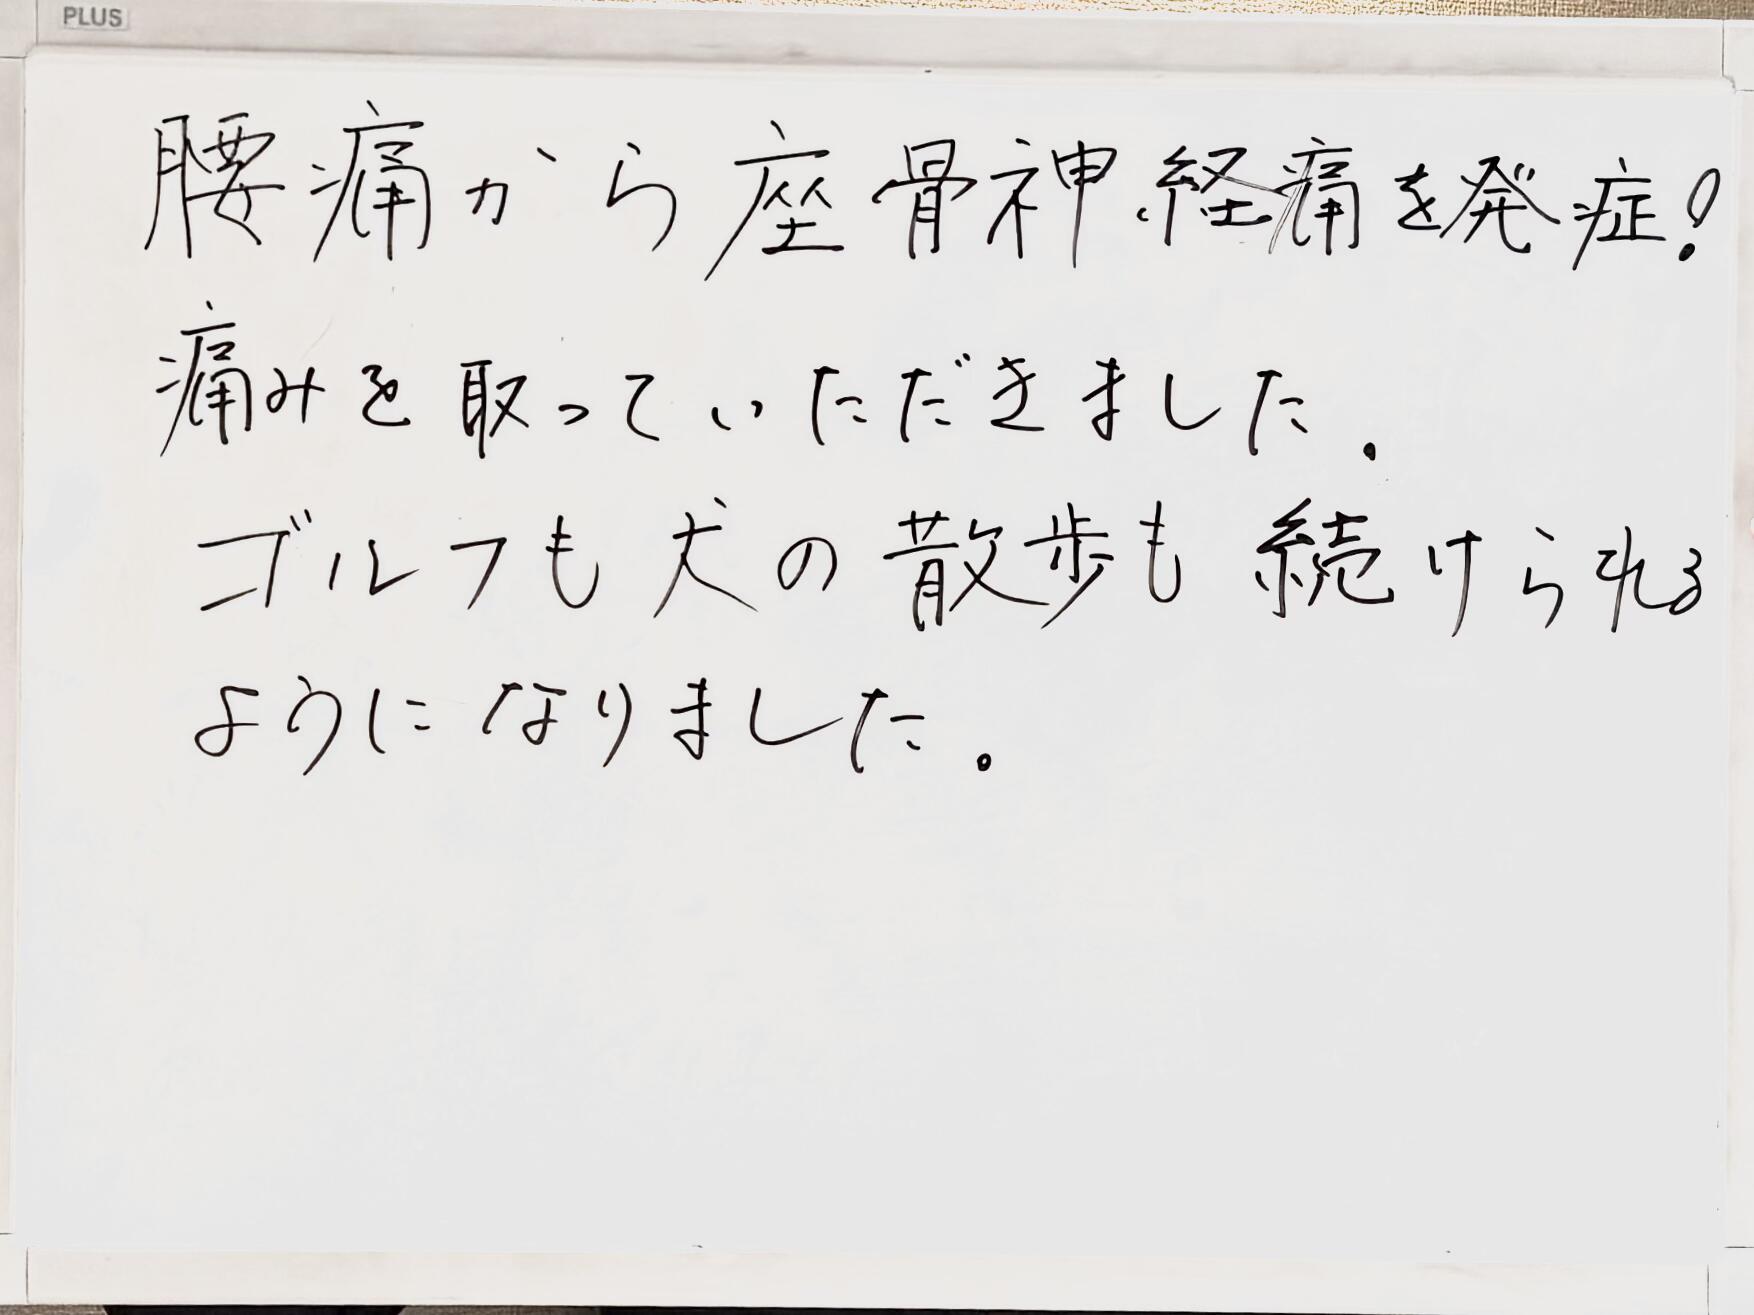 PLUS
腰痛から座骨神経痛を発症!
痛みを取っていただきました.
ゴルフも犬の散歩も続けられる
ようになりました.